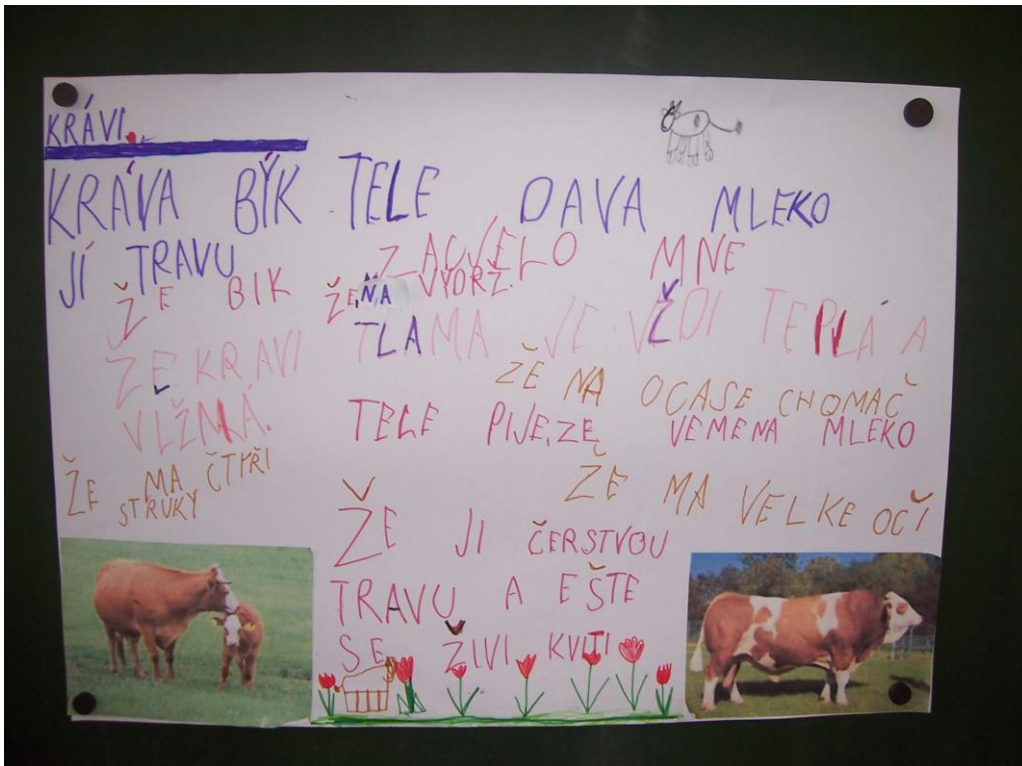 KRÁVI.
KRÁVA BÝK TELE DAVA MLEKO
JÍ TRAVU ZAUJELO MNE
ŽE BIK ŽE,NA VYDRŽ.
ŽE KRAVI TLAMA JE VŽDI TEPLÁ A
VLŽNÁ.
ŽE NA OCASE CHOMAČ
TELE PIJE,ZE VEMENA MLEKO
ŽE MA ČTYŘI
STRUKY
ŽE MA VELKE OČÍ
ŽE JI ČERSTVOU
TRAVU A EŠTE
SE ŽIVI KVITI